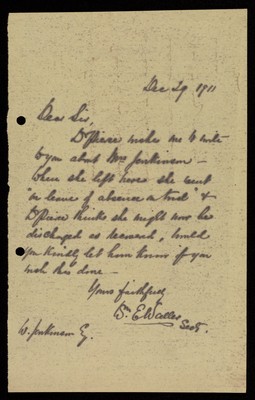 Dec 29 1911
Dear Sir,
Dr Pierce wishes me to write
to you about Mrs Jonkinson –
When she left here she went
"on leave of absence on trial" &
Dr Pierce thinks she might now be
discharged as recovered, would
you kindly let him know if you
wish this done –
Yours faithfully
Wm. E Waller
Sect.
W. Jonkinson Esq.